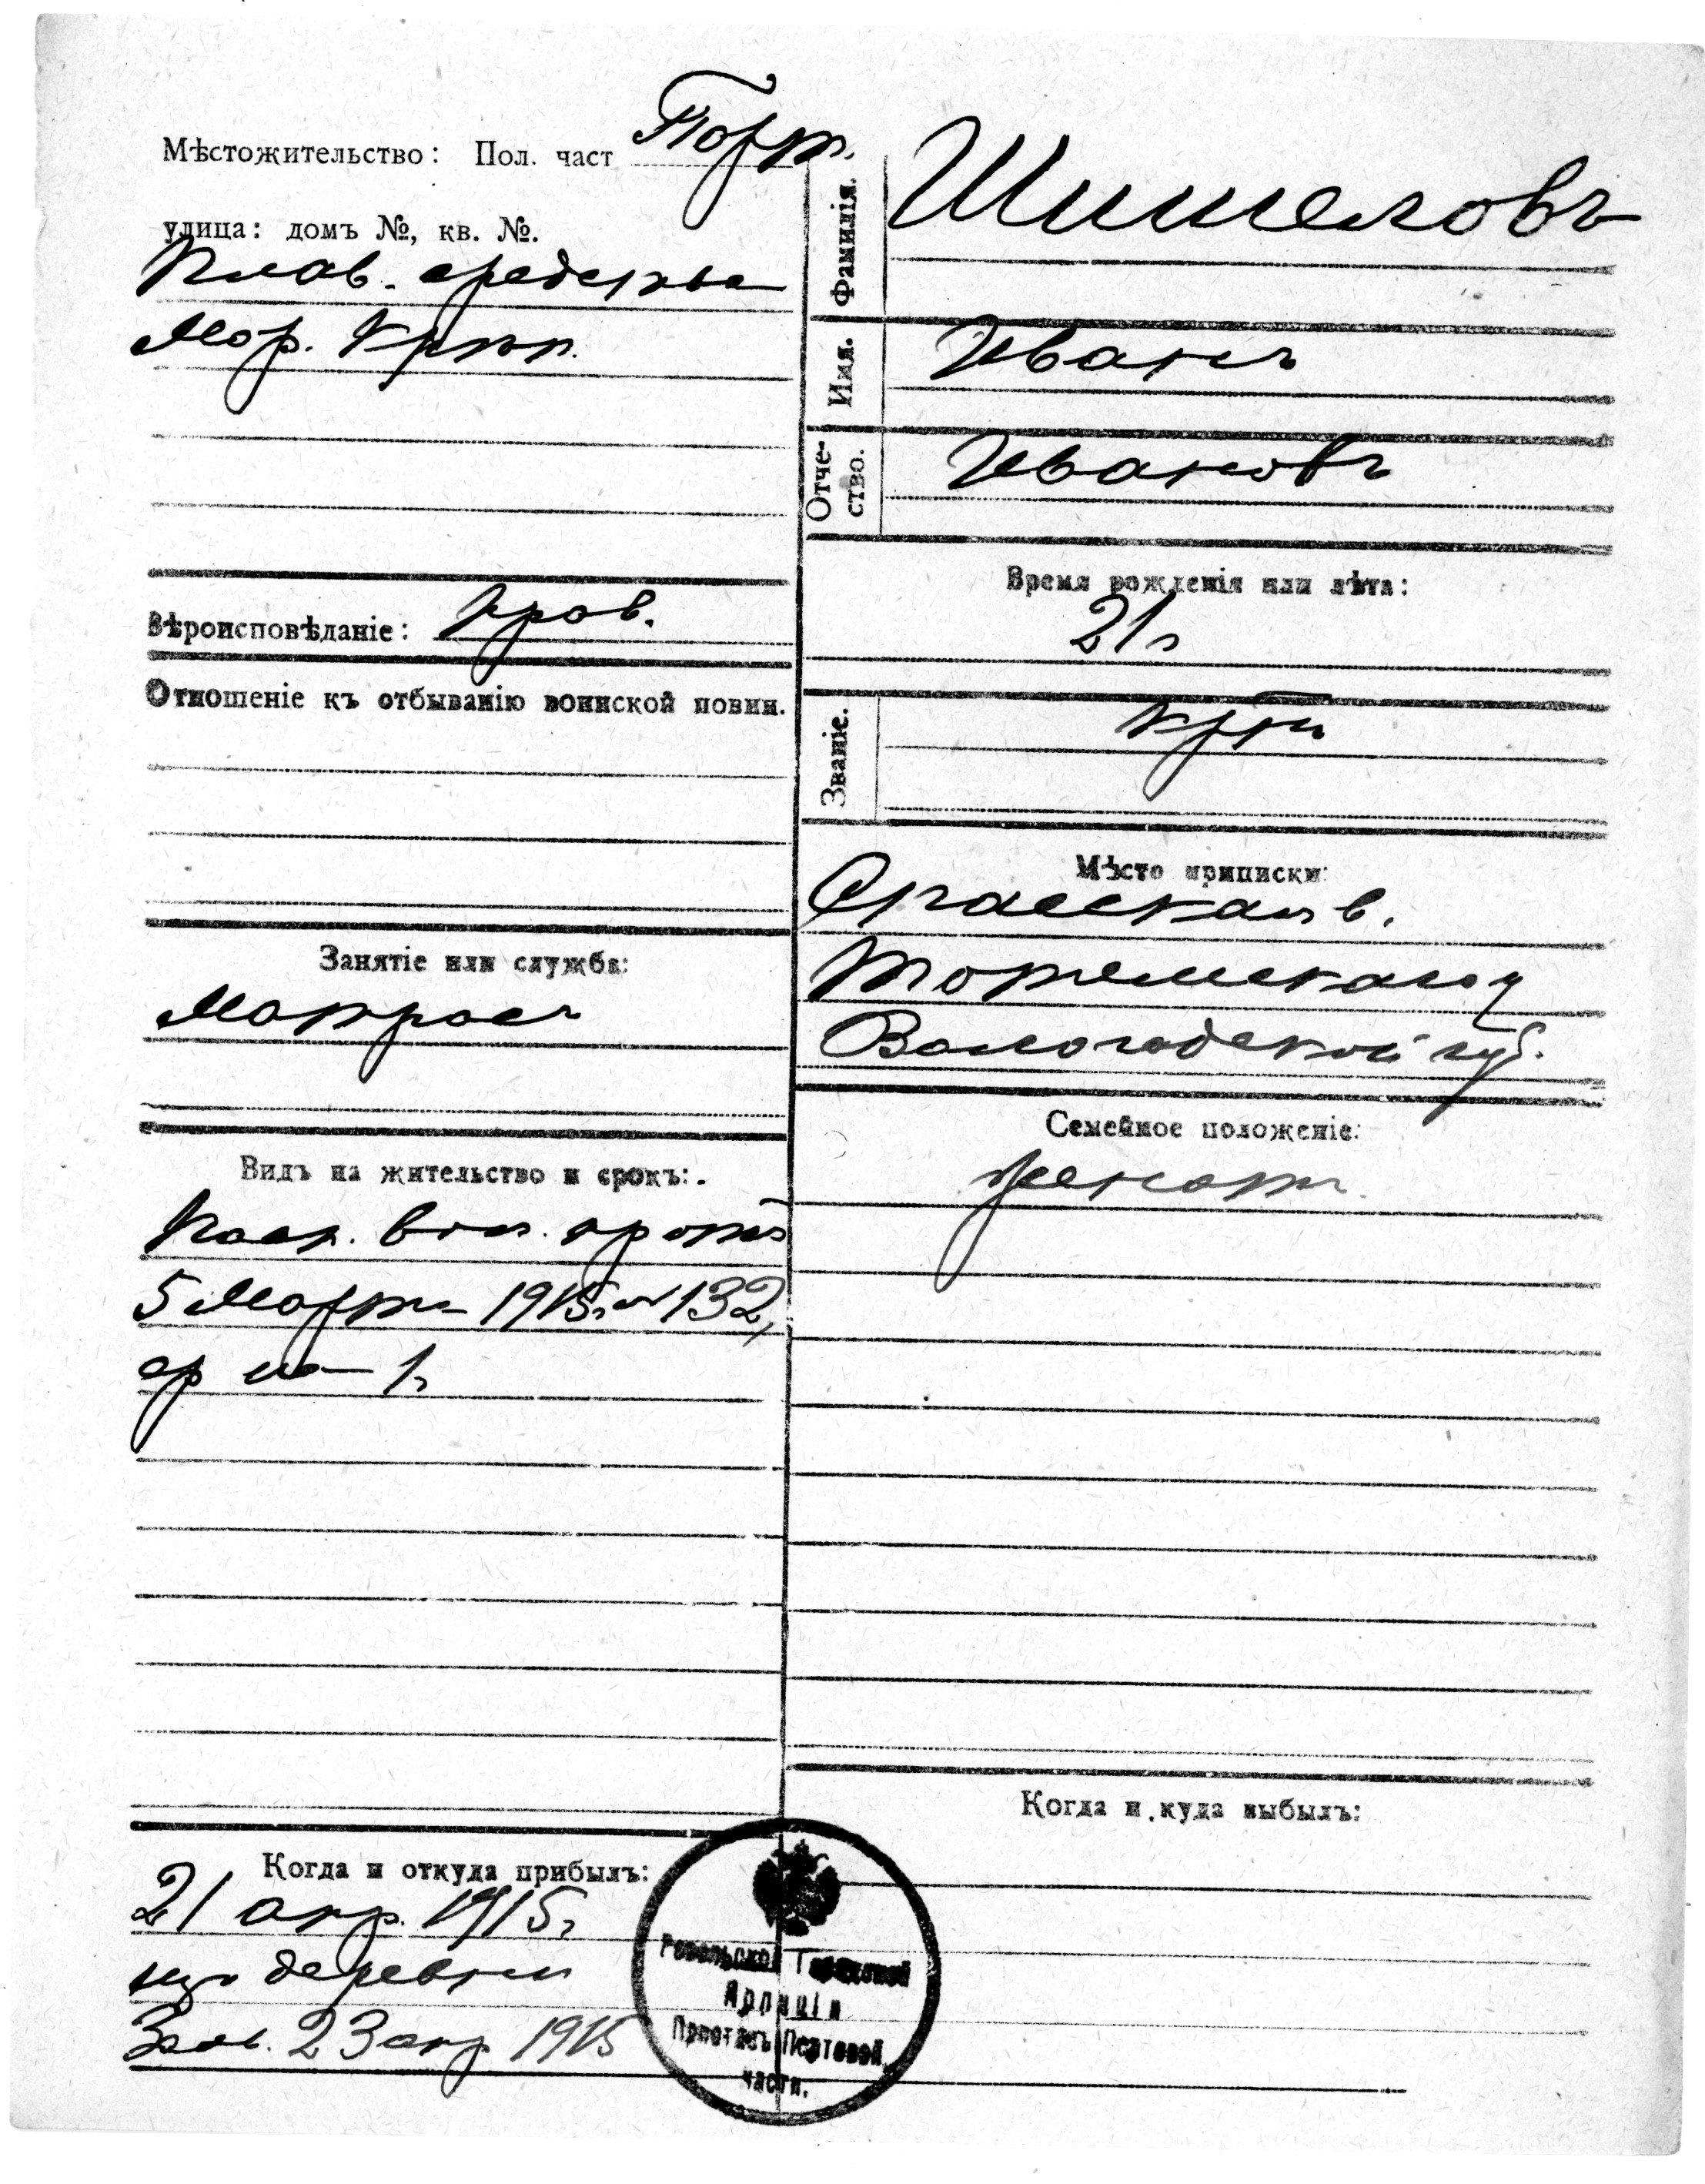 Мѣстожительство: Пол. част Порт.
улица: домъ №, кв. №.
Плав. средства
Мор. Крѣп.
Вѣроисповѣданіе: прав.
Отношеніе къ отбыванію воинской повин.
Занятіе или служба:
Матросъ
Видъ на жительство и срокъ:
Пасп. вол. прав
5 Марта 1915г № 132,
ср на 1г
Когда и откуда прибылъ:
21 апр. 1915г
изъ деревни
Заяв. 23 апр 1915
Фамилія. Шишеловъ
Имя. Иванъ
Отче-
ство. Ивановъ
Время рожденія или лѣта:
21г
Званіе. крн
Мѣсто приписки:
Спасская в.
Тотемскаго у
Вологодской губ.
Семейное положеніе:
женатъ.
Когда и куда выбылъ:
Ревельской Городской
Полиціи
Приставъ Портовой
части.